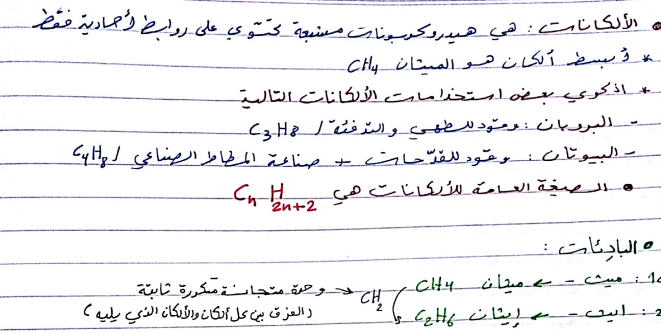 • الألكانات : هي هيدروكربونات مشبعة تحتوي على روابط أحادية فقط
* أبسط ألكان هو الميثان CH4
* اذكري بعض استخدامات الألكانات التالية
- البروبان : وقود للطهي والتدفئة / C3H8
- البيوتان : وقود للقدّاحات + صناعة المطاط الصناعي / C4H8
• الصيغة العامة للألكانات هي CnH2n+2
• البادئات :
1: ميث - ← ميثان CH4
CH2 ← وحدة متجانسة متكررة ثابتة
(الفرق بين كل ألكان والألكان الذي يليه)
2: ايث - ← إيثان C2H6